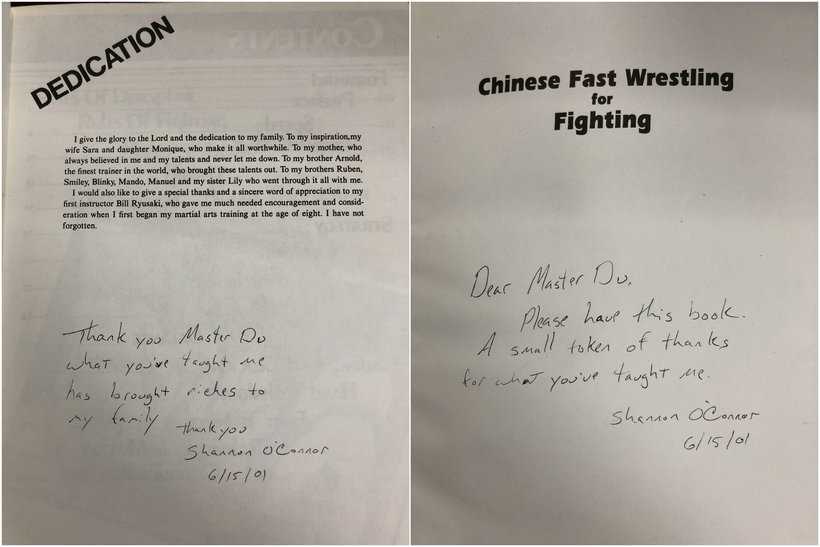 DEDICATION
I give the glory to the Lord and the dedication to my family. To my inspiration,my
wife Sara and daughter Monique, who make it all worthwhile. To my mother, who
always believed in me and my talents and never let me down. To my brother Arnold,
the finest trainer in the world, who brought these talents out. To my brothers Ruben,
Smiley, Blinky, Mando, Manuel and my sister Lily who went through it all with me.
I would also like to give a special thanks and a sincere word of appreciation to my
first instructor Bill Ryusaki, who gave me much needed encouragement and consid-
eration when I first began my martial arts training at the age of eight. I have not
forgotten.
Thank you Master Du
what you've taught me
has brought riches to
my family
Thank you
Shannon O'Connor
6/15/01
Chinese Fast Wrestling
for
Fighting
Dear Master Du,
Please have this book.
A small token of thanks
for what you've taught me.
Shannon O'Connor
6/15/01